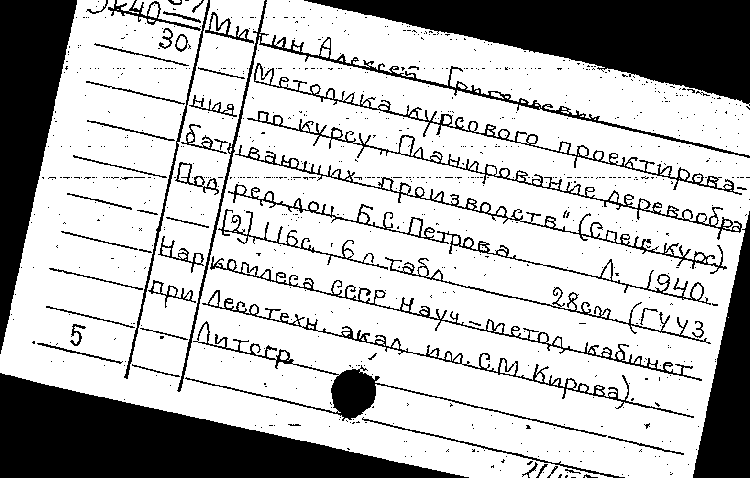 30
Митин, Алексей Григорьевич
Методика курсового проектирова-
ния по курсу „Планирование деревообра
батывающих производств". (Спец. курс).
Под ред. доц. Б.С. Петрова. Л., 1940.
[2], 116с., 6 л. табл. 28см. (ГУУЗ
Наркомлеса СССР Науч.-метод. кабинет
при Лесотехн. акад. им. С.М. Кирова).
5
Литогр.